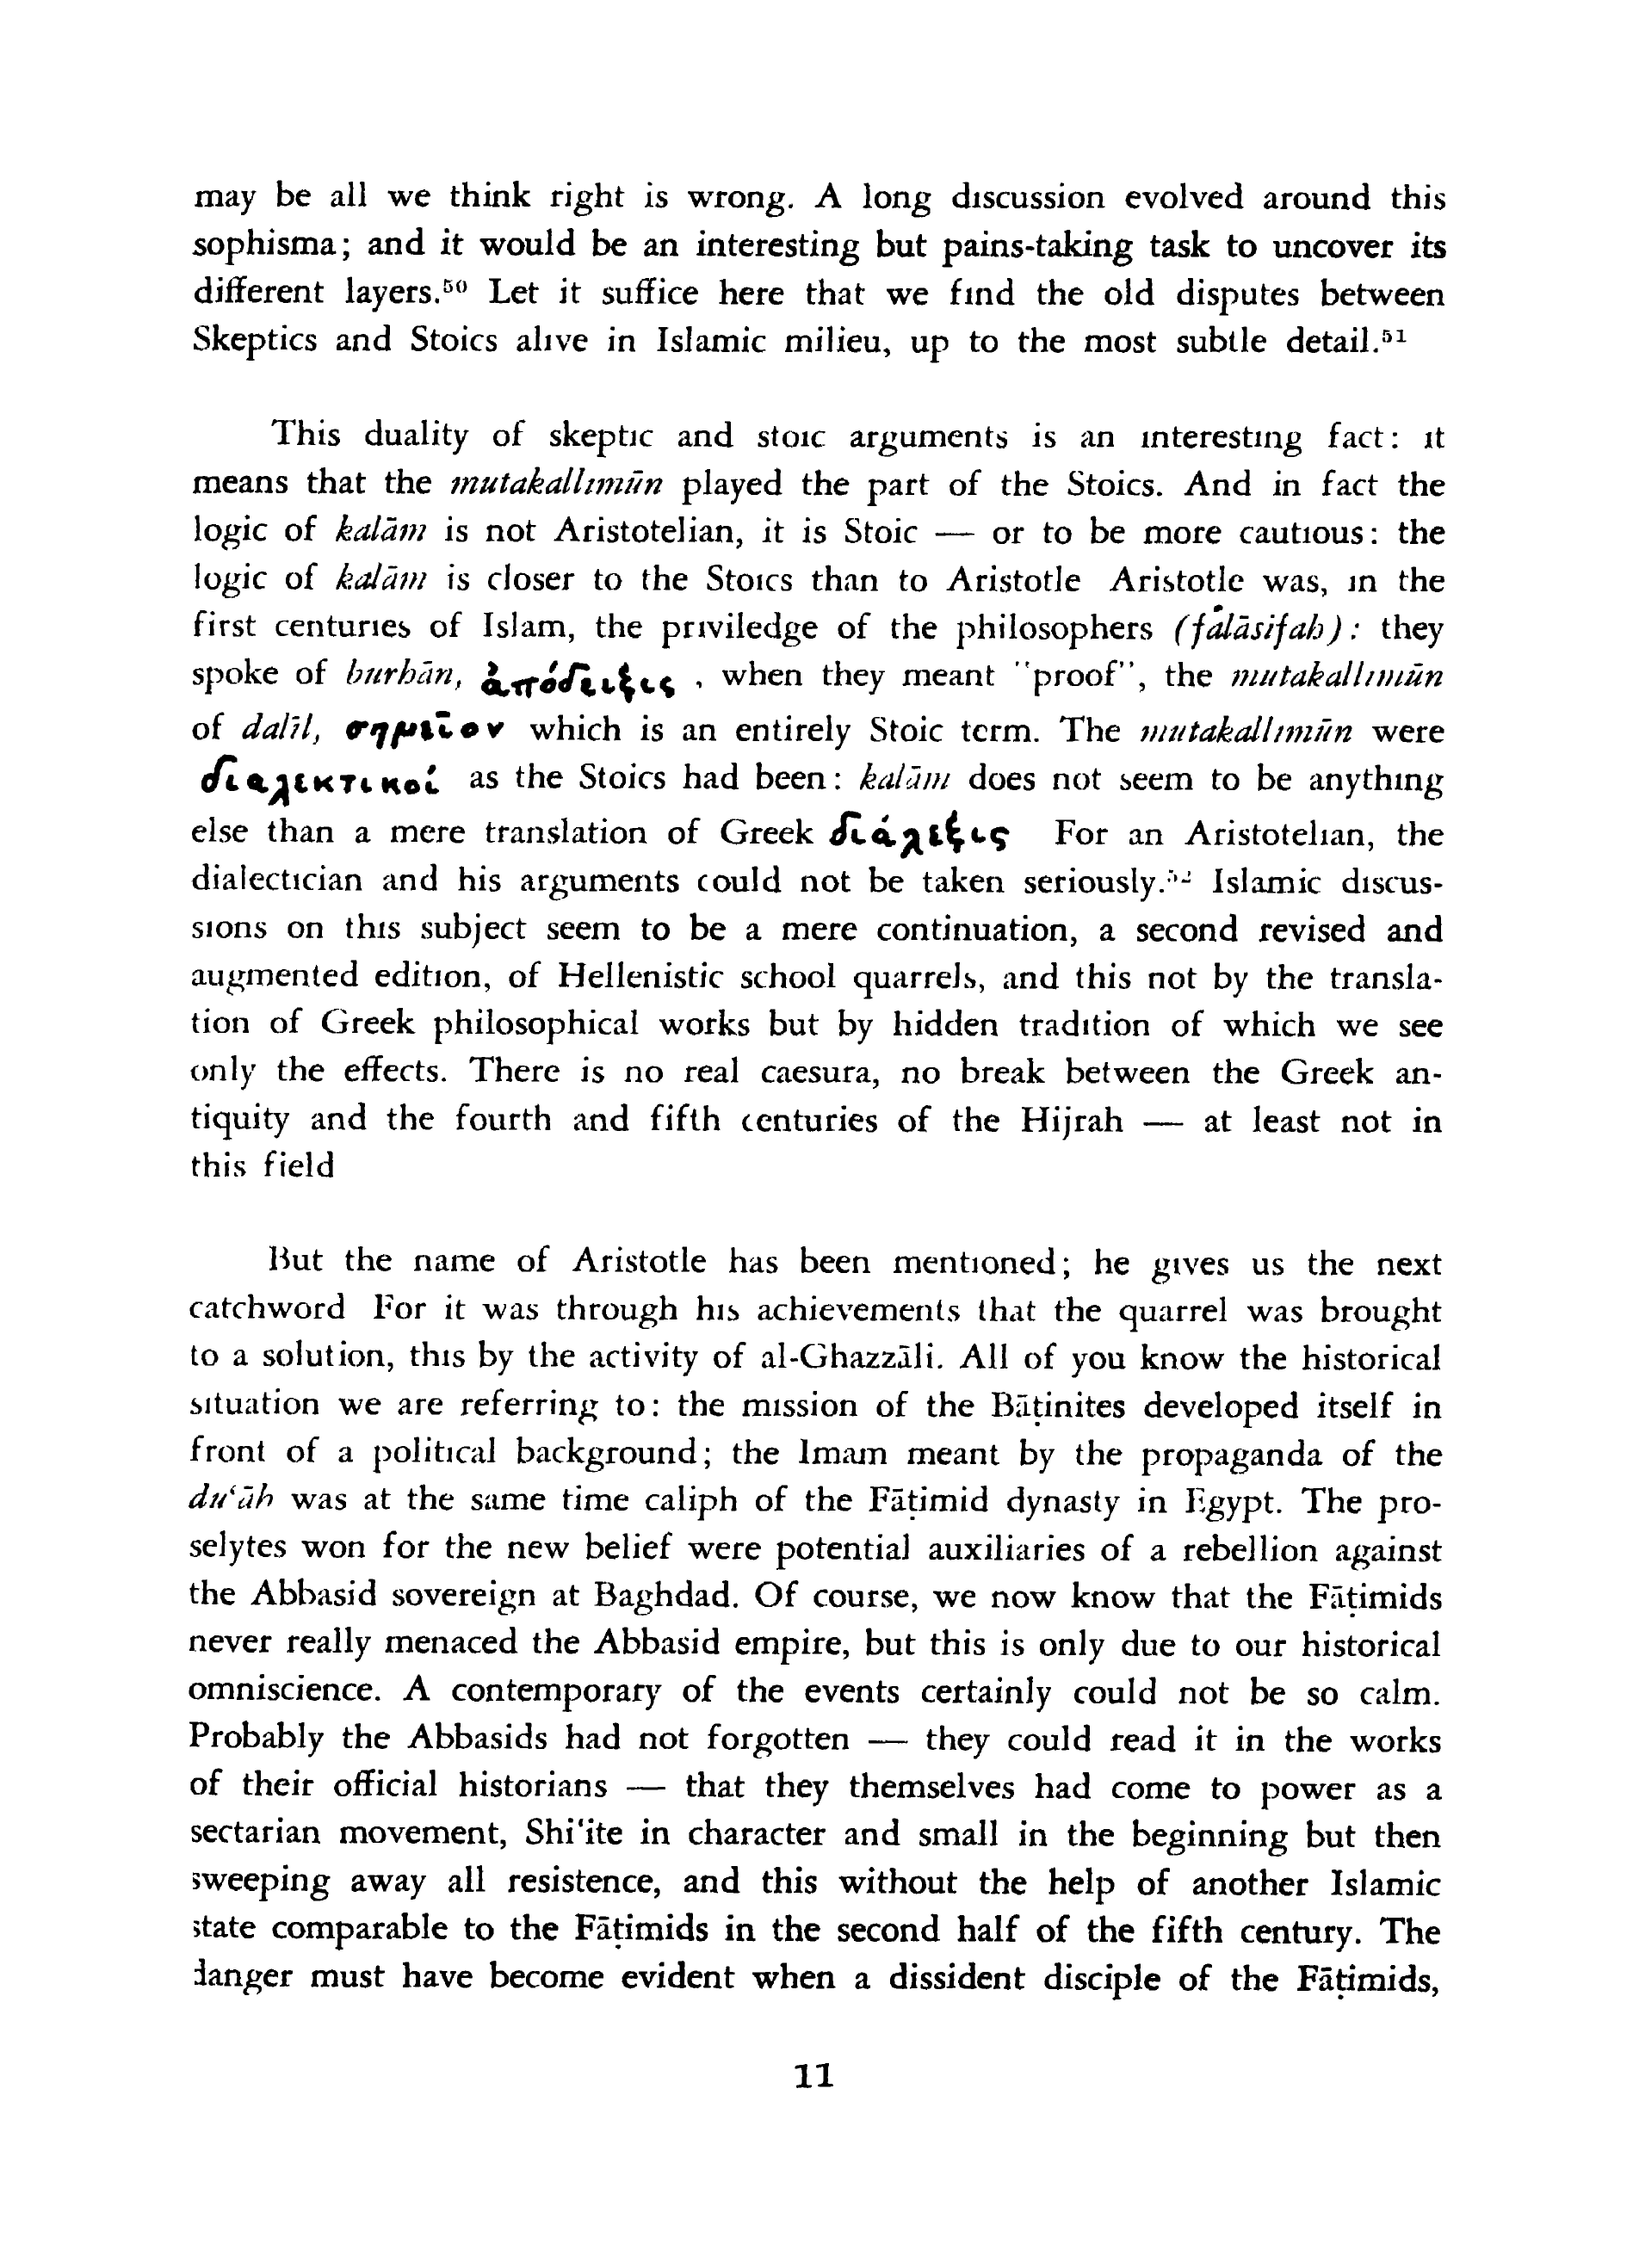 may be all we think right is wrong. A long discussion evolved around this
sophisma; and it would be an interesting but pains-taking task to uncover its
different layers.⁵⁰ Let it suffice here that we find the old disputes between
Skeptics and Stoics alive in Islamic milieu, up to the most subtle detail.⁵¹
This duality of skeptic and stoic arguments is an interesting fact: it
means that the mutakallimūn played the part of the Stoics. And in fact the
logic of kalām is not Aristotelian, it is Stoic — or to be more cautious: the
logic of kalām is closer to the Stoics than to Aristotle Aristotle was, in the
first centuries of Islam, the priviledge of the philosophers (falāsifah): they
spoke of burhān, ἀπόδειξις, when they meant "proof", the mutakallimūn
of dalīl, σημεῖον which is an entirely Stoic term. The mutakallimūn were
διαλεκτικοί as the Stoics had been: kalām does not seem to be anything
else than a mere translation of Greek διάλεξις For an Aristotelian, the
dialectician and his arguments could not be taken seriously.⁵² Islamic discus-
sions on this subject seem to be a mere continuation, a second revised and
augmented edition, of Hellenistic school quarrels, and this not by the transla-
tion of Greek philosophical works but by hidden tradition of which we see
only the effects. There is no real caesura, no break between the Greek an-
tiquity and the fourth and fifth centuries of the Hijrah — at least not in
this field
But the name of Aristotle has been mentioned; he gives us the next
catchword For it was through his achievements that the quarrel was brought
to a solution, this by the activity of al-Ghazzāli. All of you know the historical
situation we are referring to: the mission of the Bāṭinites developed itself in
front of a political background; the Imam meant by the propaganda of the
du‘āh was at the same time caliph of the Fāṭimid dynasty in Egypt. The pro-
selytes won for the new belief were potential auxiliaries of a rebellion against
the Abbasid sovereign at Baghdad. Of course, we now know that the Fāṭimids
never really menaced the Abbasid empire, but this is only due to our historical
omniscience. A contemporary of the events certainly could not be so calm.
Probably the Abbasids had not forgotten — they could read it in the works
of their official historians — that they themselves had come to power as a
sectarian movement, Shi‘ite in character and small in the beginning but then
sweeping away all resistence, and this without the help of another Islamic
state comparable to the Fāṭimids in the second half of the fifth century. The
danger must have become evident when a dissident disciple of the Fāṭimids,
11